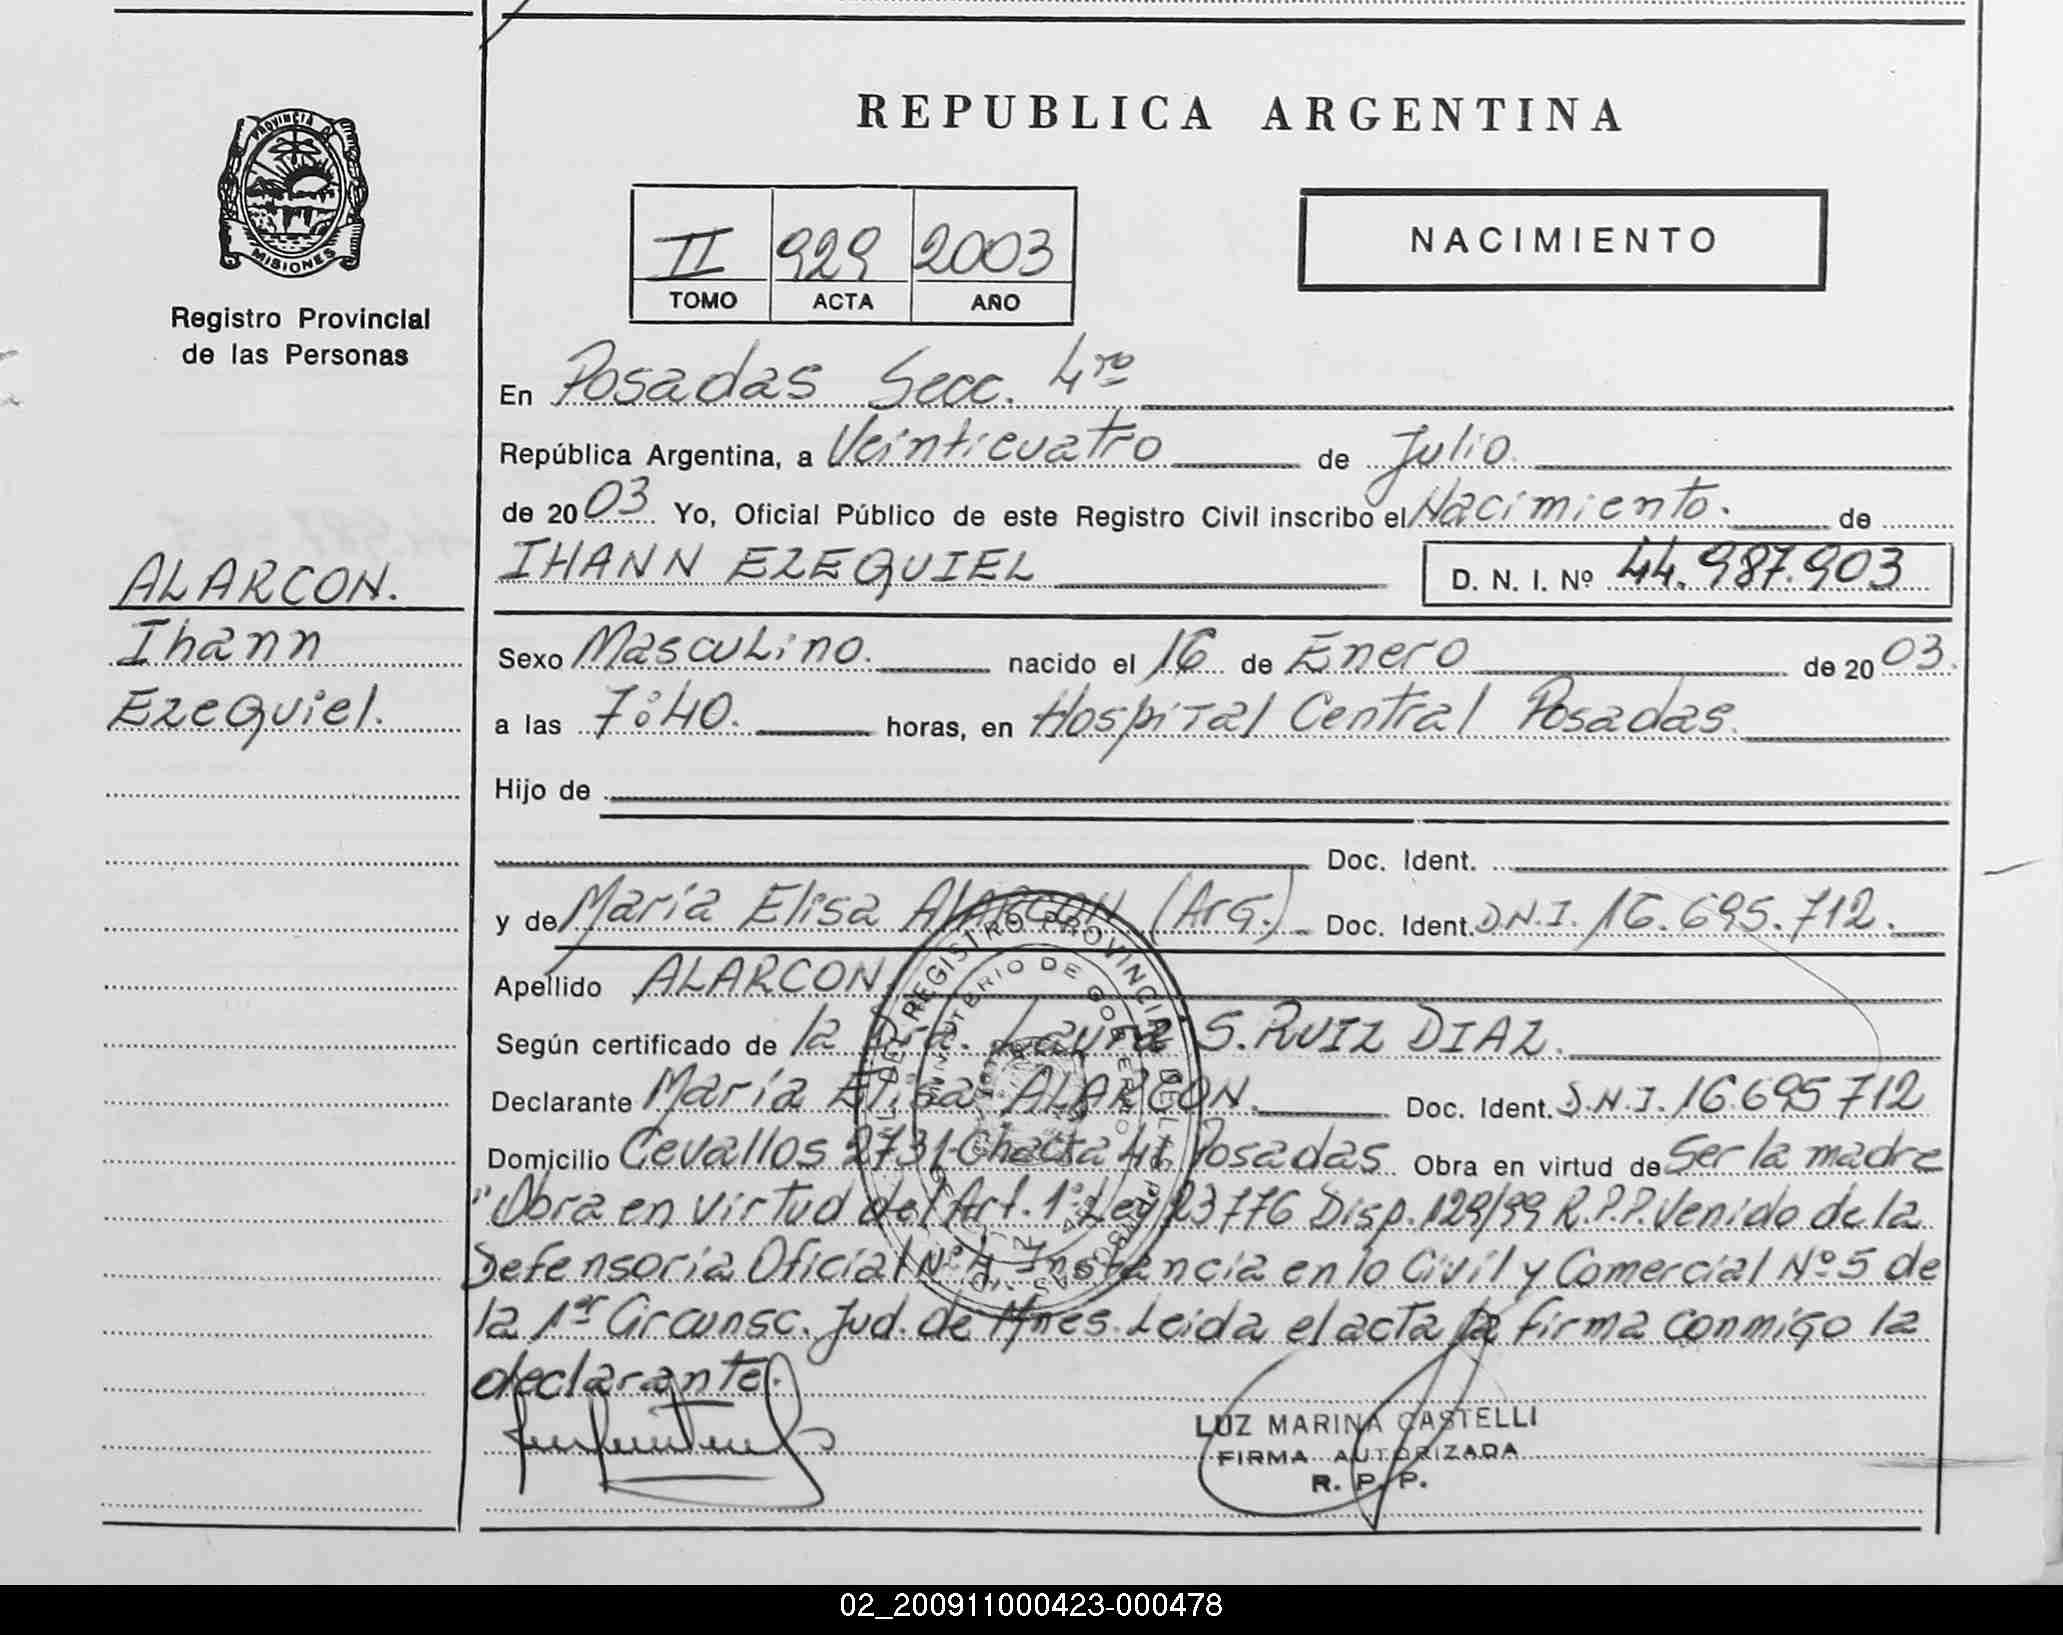 REPUBLICA ARGENTINA
PROVINCIA DE
MISIONES
Registro Provincial
de las Personas
II 929 2003
TOMO ACTA AÑO
NACIMIENTO
En Posadas Secc. 4ro
República Argentina, a Veinticuatro de Julio.
de 2003 Yo, Oficial Público de este Registro Civil inscribo el Nacimiento. de
IHANN EZEQUIEL D. N. I. Nº 44.987.903
ALARCON.
Ihann
Ezequiel.
Sexo Masculino. nacido el 16 de Enero de 2003.
a las 7:40. horas, en Hospital Central Posadas.
Hijo de
Doc. Ident.
y de María Elisa ALARCON (Arg.) Doc. Ident. D.N.I. 16.695.712.
Apellido ALARCON.
Según certificado de la Dra. Laura S. RUIZ DIAZ.
Declarante María Elisa ALARCON. Doc. Ident. D.N.I. 16.695712
Domicilio Cevallos 2731 Chacra 41 Posadas Obra en virtud de Ser la madre
"Obra en virtud del Art. 1º Ley 23776 Disp. 129/99 R.P.P. Venido de la
Defensoría Oficial Nº 4 Instancia en lo Civil y Comercial Nº 5 de
la 1er Circunsc. Jud. de Mnes. Leida el acta la firma conmigo la
declarante.
REGISTRO PROVINCIAL DE LAS PERSONAS
MINISTERIO DE GOBIERNO
LUZ MARINA CASTELLI
FIRMA AUTORIZADA
R. P. P.
02_200911000423-000478